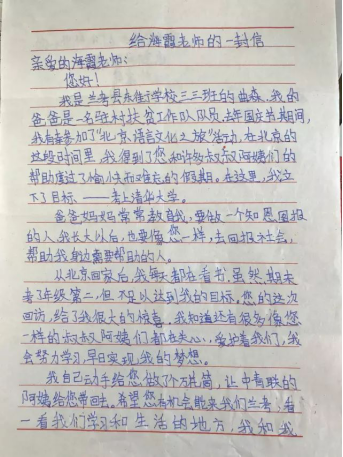 给海霞老师的一封信
亲爱的海霞老师：
您好！
我是兰考县东街学校三三班的曲森，我的
爸爸是一名驻村扶贫工作队队员，去年国庆节期间，
我有幸参加了“北京语言文化之旅”活动，在北京的
这段时间里，我得到了您和许多叔叔阿姨们的
帮助度过了愉快而难忘的假期。在这里，我立
下了目标——考上清华大学。
爸爸妈妈常常教育我，要做一个知恩图报
的人我长大以后，也要像您一样，去回报社会，
帮助我身边需要帮助的人。
从北京回家后，我每天都在看书，虽然期末
考了年级第二，但不足以达到我的目标，您的这次
回访，给了我很大的惊喜，我知道还有很多像您
一样的叔叔阿姨们都在关心、爱护着我们，我
会努力学习，早日实现我的梦想。
我自己动手给您做了个万花筒，让中青联的
阿姨给您带回去。希望您有机会能来我们兰考，看
一看我们学习和生活的地方，我和我